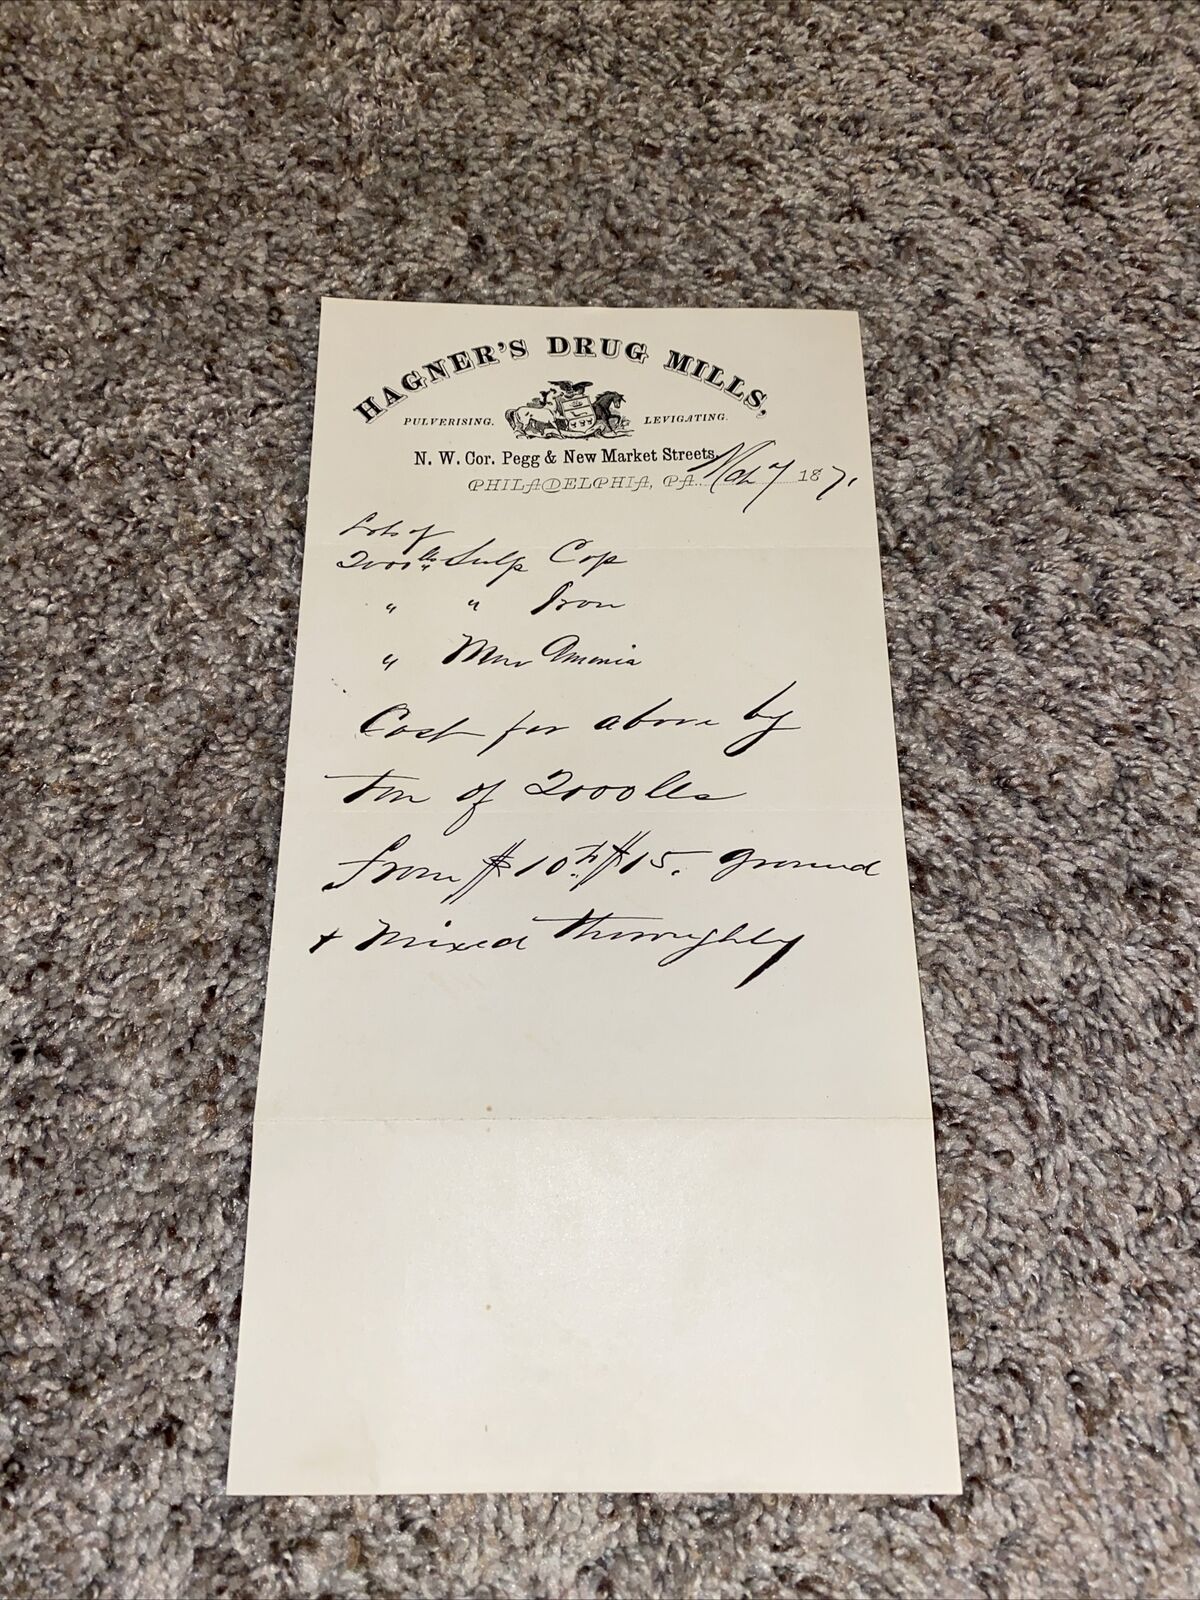 HAGNER'S DRUG MILLS,
PULVERISING. LEVIGATING.
N. W. Cor. Pegg & New Market Streets,
PHILADELPHIA, PA. 7 187.
Lots of
2000 lbs Sulp Cop
" " Iron
" Mur Amonia
Cost for above by
ton of 2000 lbs
from $10 to $15. ground
+ mixed thoroughly